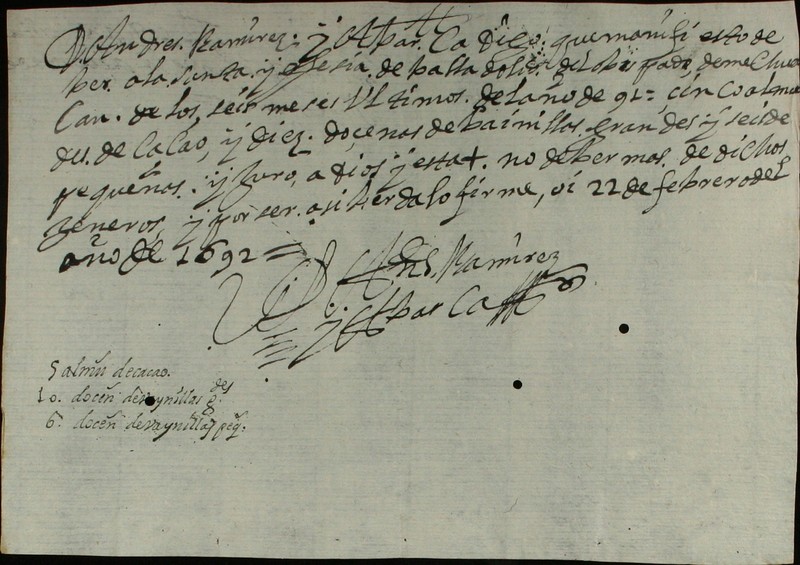 D. Andres. Ramirez. y Albar. Ca Digo. que manifiesto de
ber. a la santa yglesia. de balladolid. del obispado. de mechua
can. de los, seis meses Ultimos. del año de 91 = cinco almu
des. de cacao, y diez. docenas de bainillas. grandes y seis de
pequeñas. y Juro, a dios y esta +. no deber mas. de dichos
generos, y por ser. asi berda lo firme, oi 22 de febrero del
año de 1692 =
D. Ands. Ramirez
y Albar Ca
5 almu de cacao.
10. docen de vaynillas g.des
6. docen de vaynillas peq.